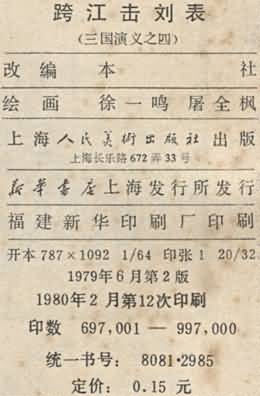 跨江击刘表
(三国演义之四)
改编 本社
绘画 徐一鸣 屠全枫
上海人民美术出版社出版
上海长乐路672弄33号
新华书店上海发行所发行
福建新华印刷厂印刷
开本787×1092 1/64 印张1 20/32
1979年6月第2版
1980年2月第12次印刷
印数 697,001 — 997,000
统一书号: 8081·2985
定价: 0.15元